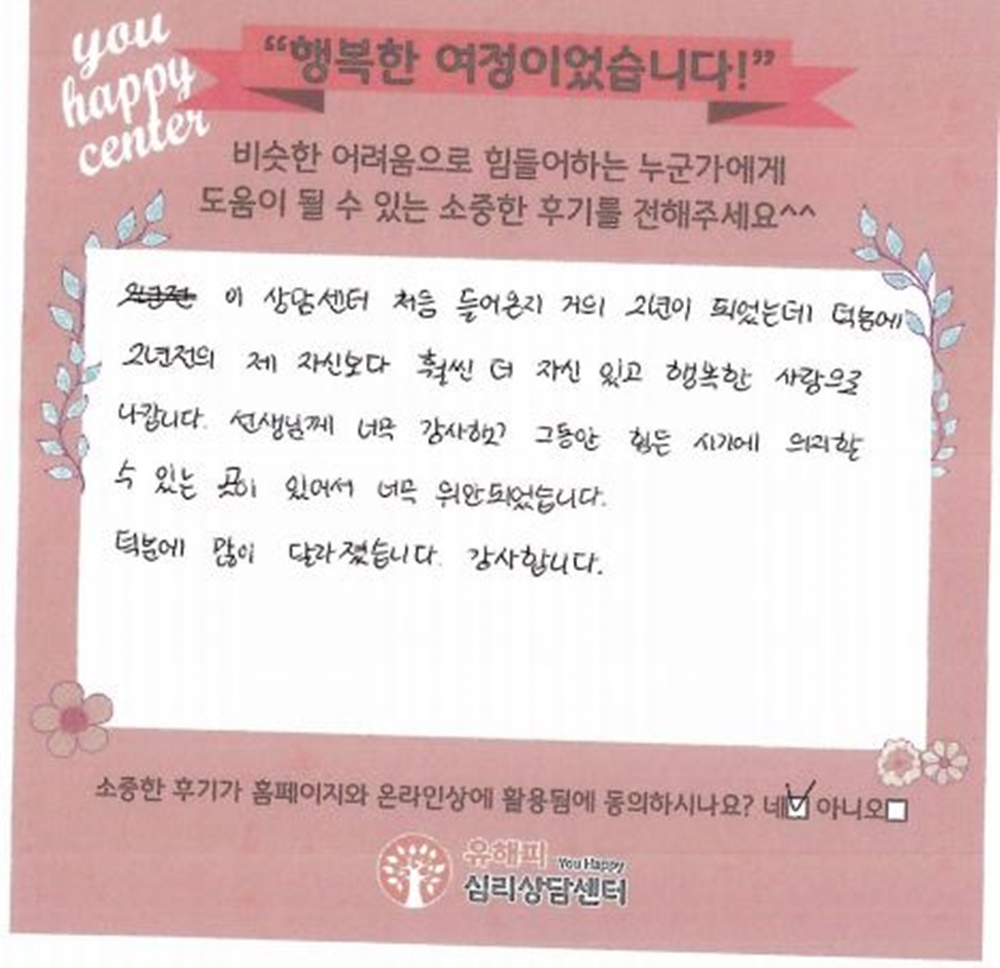 you
happy
center
“행복한 여정이었습니다!”
비슷한 어려움으로 힘들어하는 누군가에게
도움이 될 수 있는 소중한 후기를 전해주세요^^
이 상담센터 처음 들어온지 거의 2년이 되었는데 덕분에
2년전의 제 자신보다 훨씬 더 자신 있고 행복한 사람으로
나갑니다. 선생님께 너무 감사하고 그동안 힘든 시기에 의지할
수 있는 곳이 있어서 너무 위안되었습니다.
덕분에 많이 달라졌습니다. 감사합니다.
소중한 후기가 홈페이지와 온라인상에 활용됨에 동의하시나요? 네 아니오
유해피 You Happy
심리상담센터